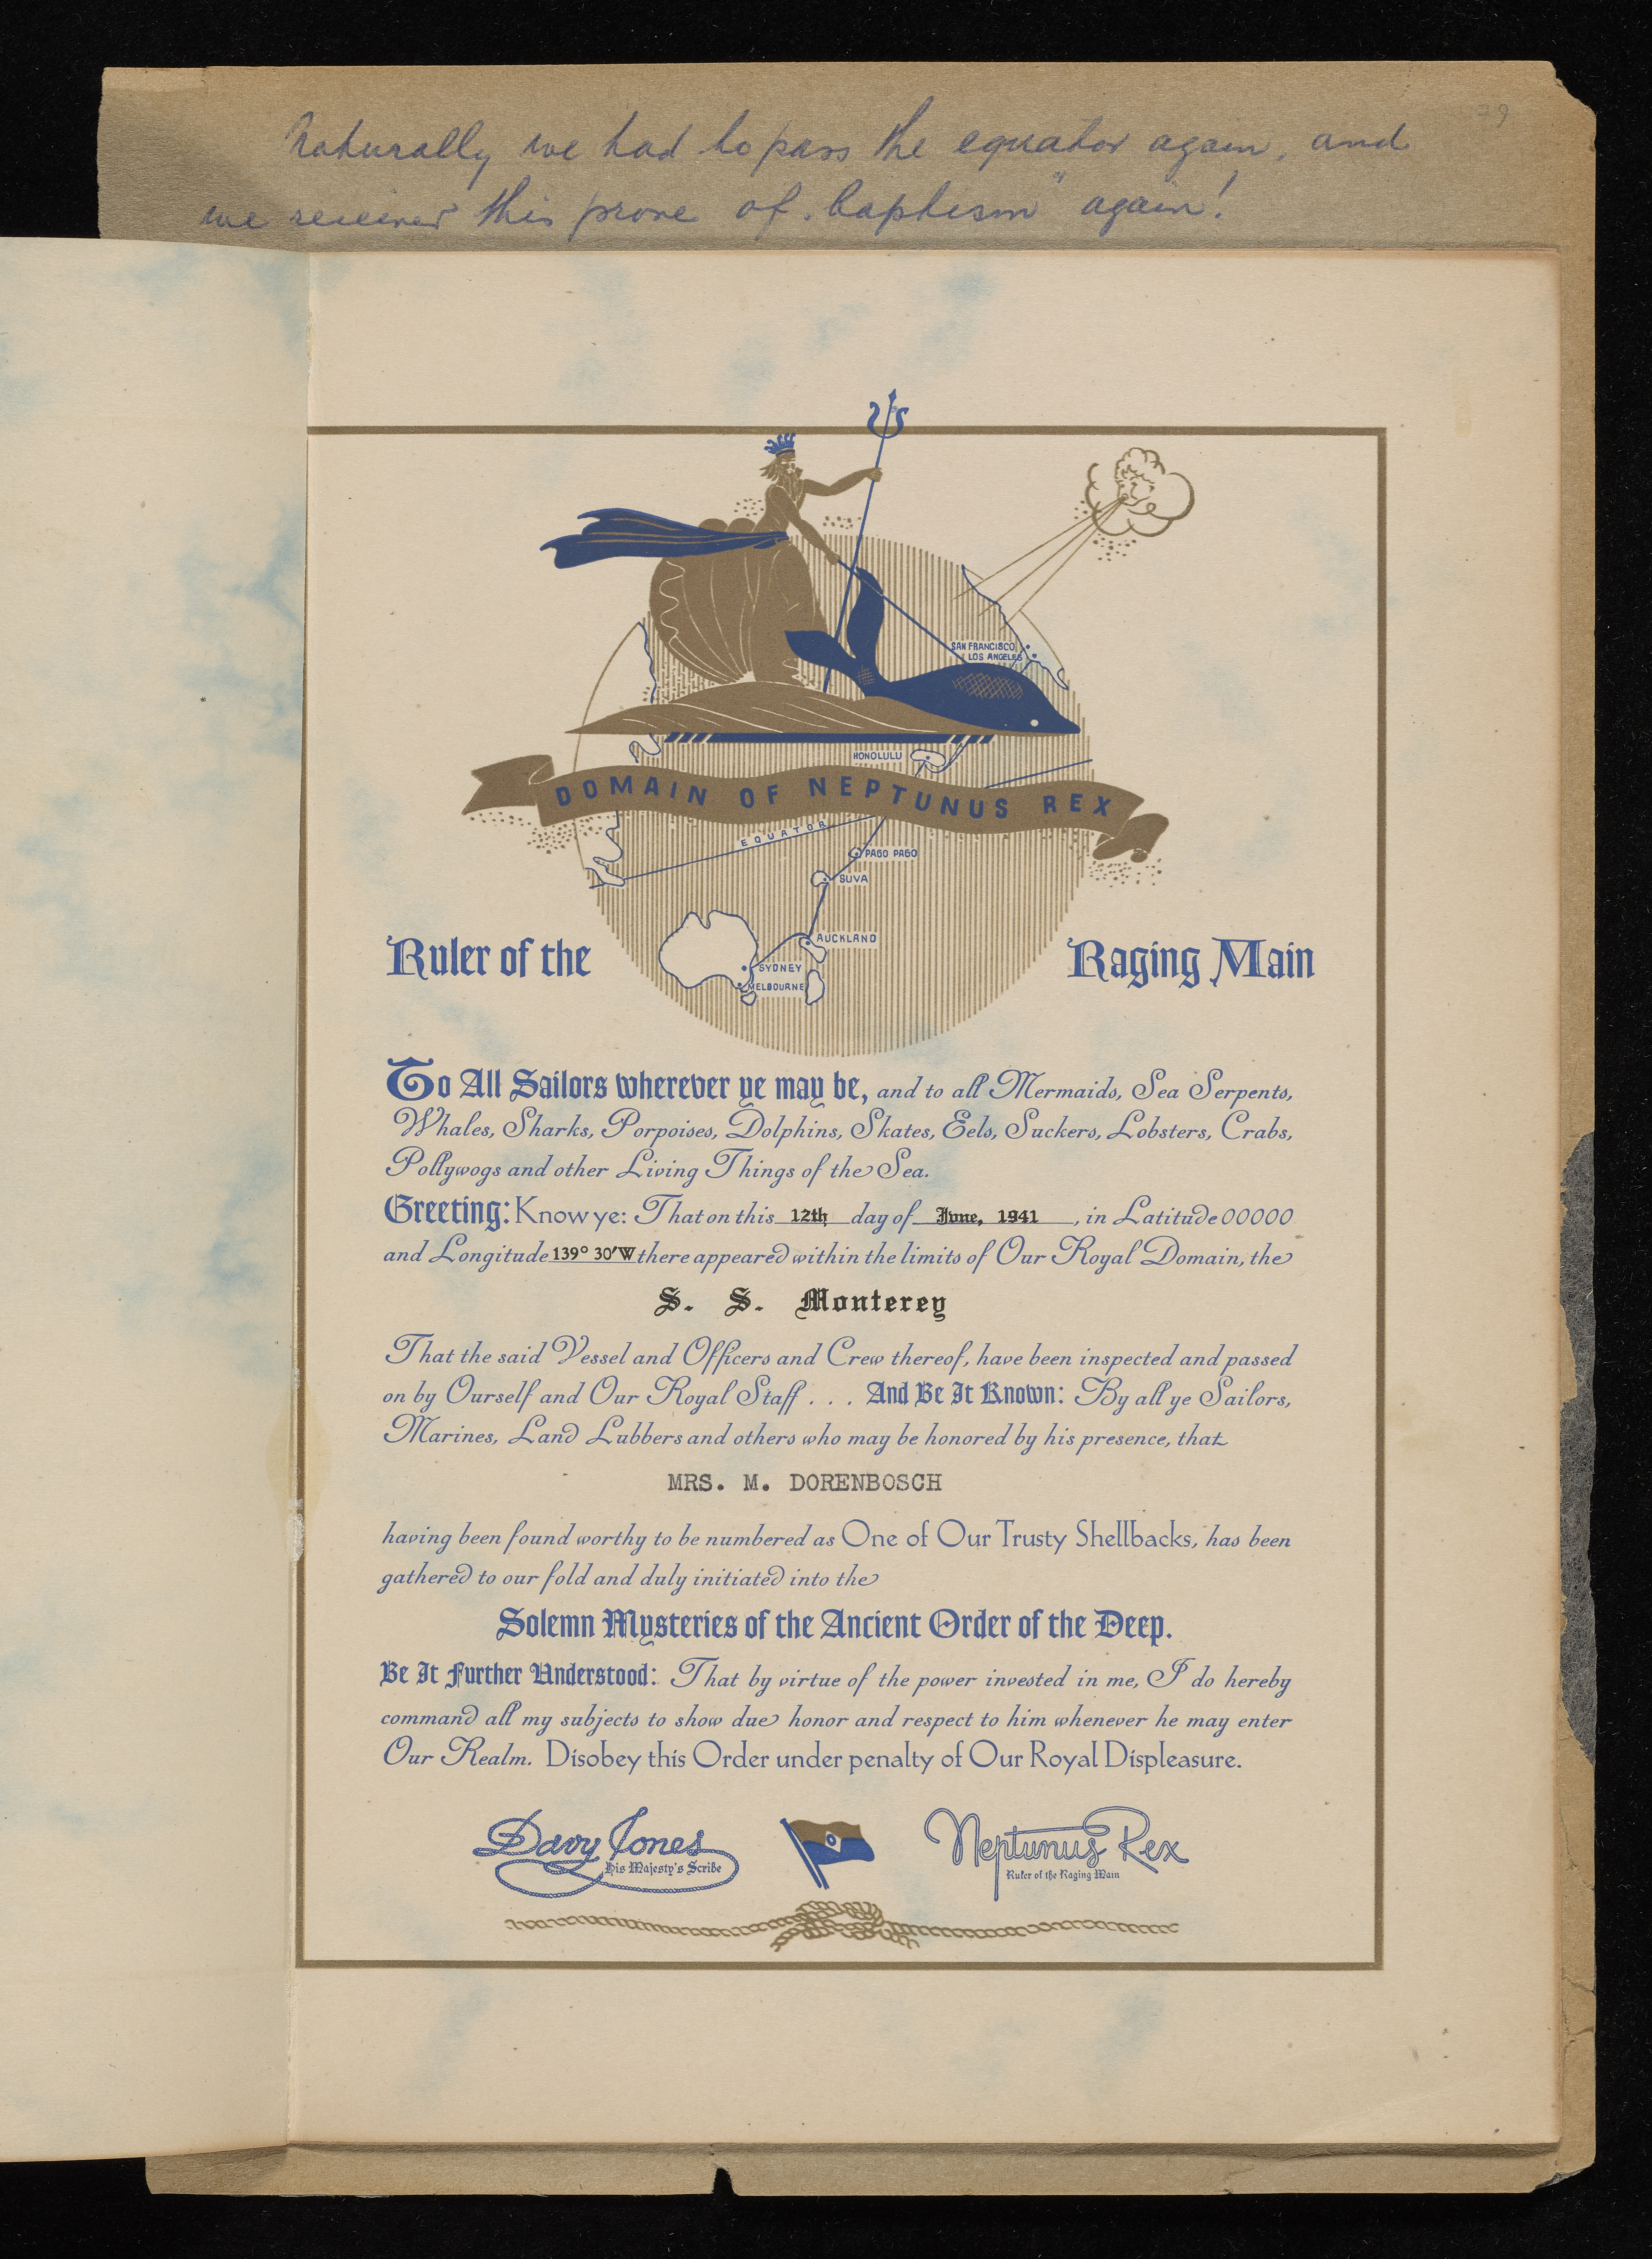 79
Naturally we had to pass the equator again, and
we received this prove of „baptism" again!
SAN FRANCISCO
LOS ANGELES
HONOLULU
DOMAIN OF NEPTUNUS REX
EQUATOR
PAGO PAGO
SUVA
AUCKLAND
SYDNEY
MELBOURNE
Ruler of the Raging Main
To All Sailors wherever ye may be, and to all Mermaids, Sea Serpents,
Whales, Sharks, Porpoises, Dolphins, Skates, Eels, Suckers, Lobsters, Crabs,
Pollywogs and other Living Things of the Sea.
Greeting: Know ye: That on this 12th day of June, 1941, in Latitude 00000
and Longitude 139° 30'W there appeared within the limits of Our Royal Domain, the
S. S. Monterey
That the said Vessel and Officers and Crew thereof, have been inspected and passed
on by Ourself and Our Royal Staff . . . And Be It Known: By all ye Sailors,
Marines, Land Lubbers and others who may be honored by his presence, that
MRS. M. DORENBOSCH
having been found worthy to be numbered as One of Our Trusty Shellbacks, has been
gathered to our fold and duly initiated into the
Solemn Mysteries of the Ancient Order of the Deep.
Be It Further Understood: That by virtue of the power invested in me, I do hereby
command all my subjects to show due honor and respect to him whenever he may enter
Our Realm. Disobey this Order under penalty of Our Royal Displeasure.
Davy Jones
His Majesty's Scribe
Neptunus Rex
Ruler of the Raging Main